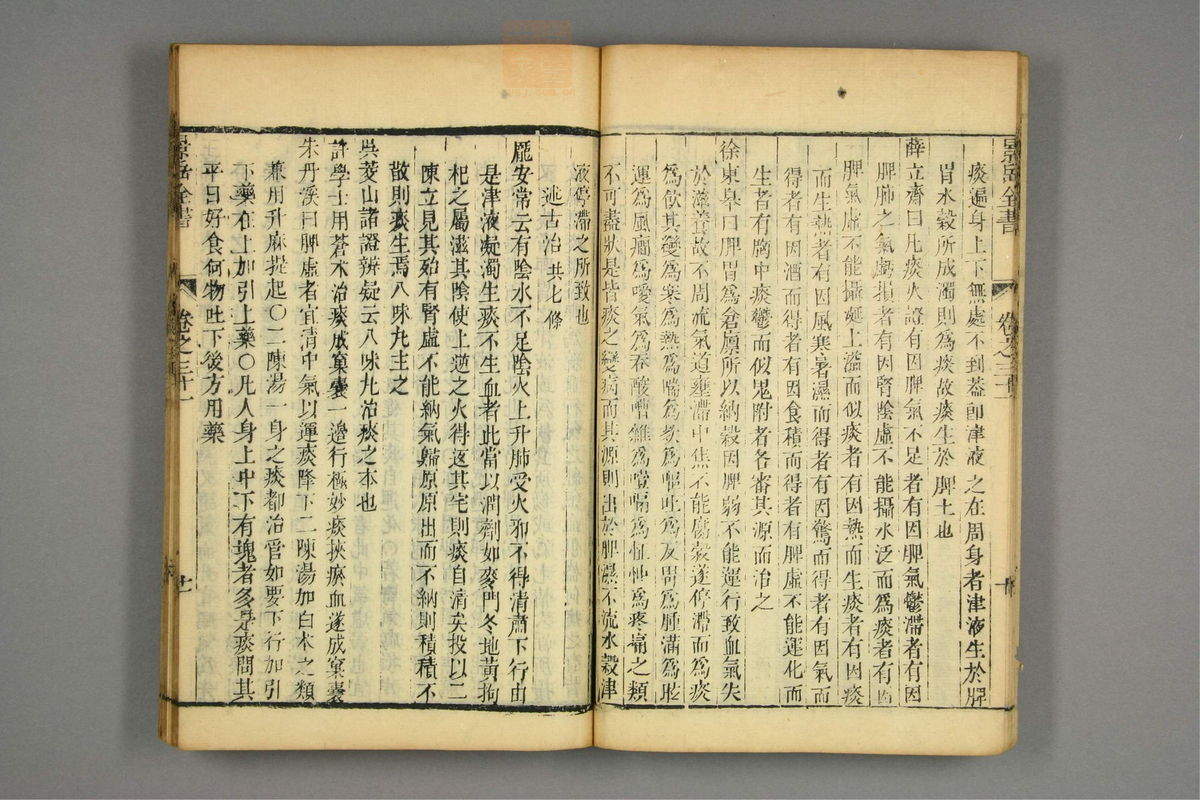 景岳全書 卷之三十一
痰遍身上下無處不到葢卽津液之在周身者津液生於脾
胃水穀所成濁則爲痰故痰生於脾土也
薛立齋曰凡痰火證有因脾氣不足者有因脾氣鬱滯者有因
脾肺之氣虧損者有因腎陰虛不能攝水泛而爲痰者有因
脾氣虛不能攝涎上溢而似痰者有因熱而生痰者有因痰
而生熱者有因風寒暑濕而得者有因驚而得者有因氣而
得者有因酒而得者有因食積而得者有脾虛不能運化而
生者有胸中痰鬱而似鬼附者各審其源而治之
徐東臯曰脾胃爲倉廩所以納穀因脾弱不能運行致血氣失
於滋養故不周流氣道壅滯中焦不能腐穀遂停滯而爲痰
爲飲其變爲寒爲熱爲喘爲欬爲嘔吐爲反胃爲腫滿爲眩
運爲風癇爲噯氣爲吞酸嘈雜爲噎膈爲怔忡爲疼痛之類
不可盡狀是皆痰之變病而其源則出於脾濕不流水穀津
液停滯之所致也
述古治共七條
龐安常云有陰水不足陰火上升肺受火邪不得清肅下行由
是津液凝濁生痰不生血者此當以潤劑如麥門冬地黃拘
杞之屬滋其陰使上逆之火得返其宅則痰自清矣投以二
陳立見其殆有腎虛不能納氣歸原原出而不納則積積不
散則痰生焉八味丸主之
吳茭山諸證辨疑云八味丸治痰之本也
許學士用蒼朮治痰成窠囊一邊行極妙痰挾瘀血遂成窠囊
朱丹溪曰脾虛者宜清中氣以運痰降下二陳湯加白朮之類
兼用升麻提起〇二陳湯一身之痰都治管如要下行加引
下藥在上加引上藥〇凡人身上中下有塊者多是痰問其
平日好食何物吐下後方用藥
景岳全書 卷之三十一